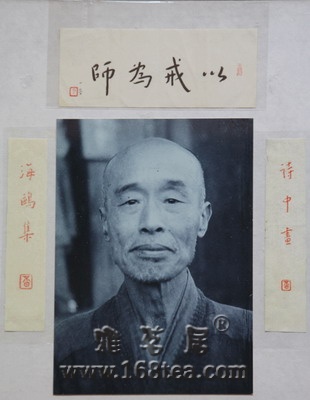 以戒為師
詩中畫
海鷗集
雅茗居®
www.168tea.com